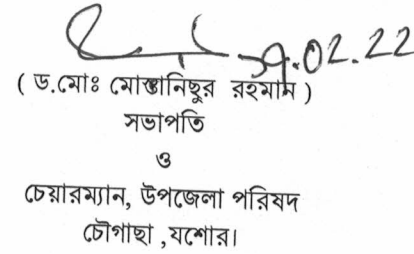 ১৭.০২.22
( ড.মোঃ মোস্তানিছুর রহমান )
সভাপতি
ও
চেয়ারম্যান, উপজেলা পরিষদ
চৌগাছা ,যশোর।